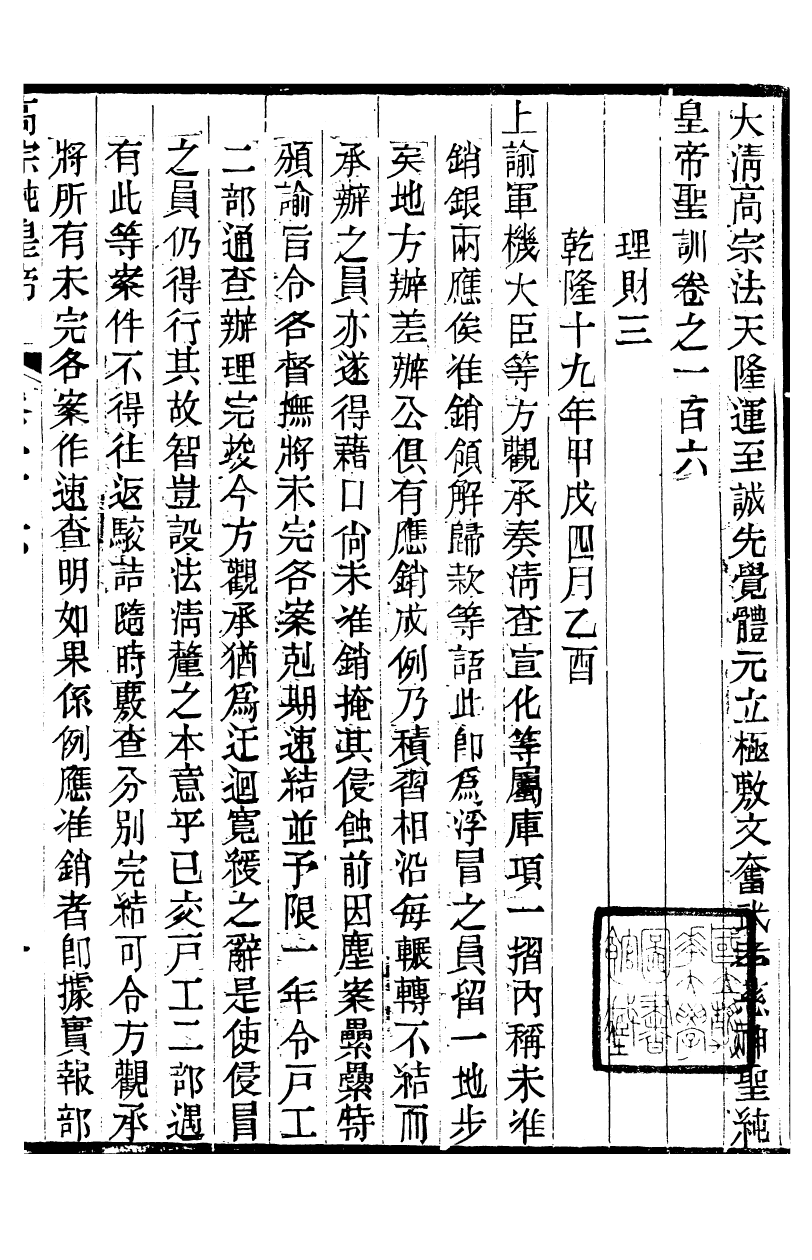 大淸高宗法天隆運至誠先覺體元立極敷文奮武孝慈神聖純
皇帝聖訓卷之一百六
理財三
乾隆十九年甲戌四月乙酉
上諭軍機大臣等方觀承奏淸查宣化等屬庫項一摺內稱未准
銷銀兩應俟准銷領解歸款等語此卽爲浮冒之員留一地步
矣地方辦差辦公俱有應銷成例乃積習相沿每輾轉不結而
承辦之員亦遂得藉口尙未准銷掩其侵蝕前因塵案纍纍特
頒諭旨令各督撫將未完各案剋期速結並予限一年令戶工
二部通查辦理完竣今方觀承猶爲迂迴寬緩之辭是使侵冒
之員仍得行其故智豈設法淸釐之本意乎已交戶工二部遇
有此等案件不得往返駁詰隨時覈查分別完結可令方觀承
將所有未完各案作速查明如果係例應准銷者卽據實報部
高宗純皇帝
國立清華大學圖書館藏